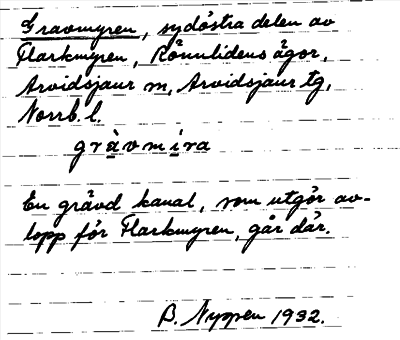 Gravmyren, sydöstra delen av
Flarkmyren, Rönnlidens ägor,
Arvidsjaur sn, Arvidsjaur tg,
Norrb. l.
gràvmira
En grävd kanal, som utgör av-
lopp för Flarkmyren, går där.
B. Nyppen 1932.